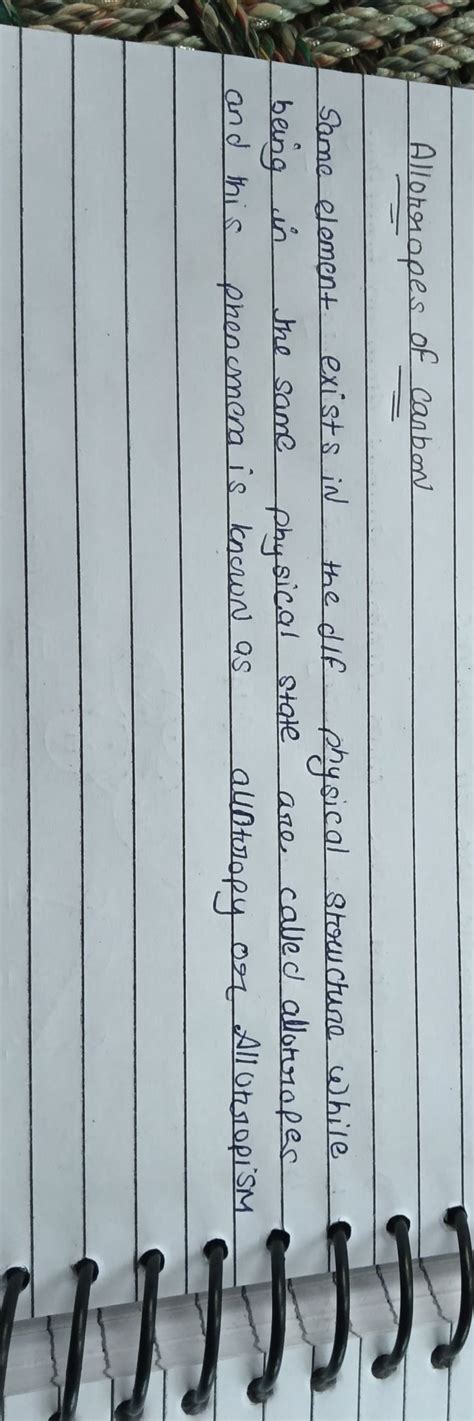 Allotropes of carbon
Same element exists in the dif physical structure while
being in the same physical state are called allotropes
and this phenomena is known as allotropy or Allotropism